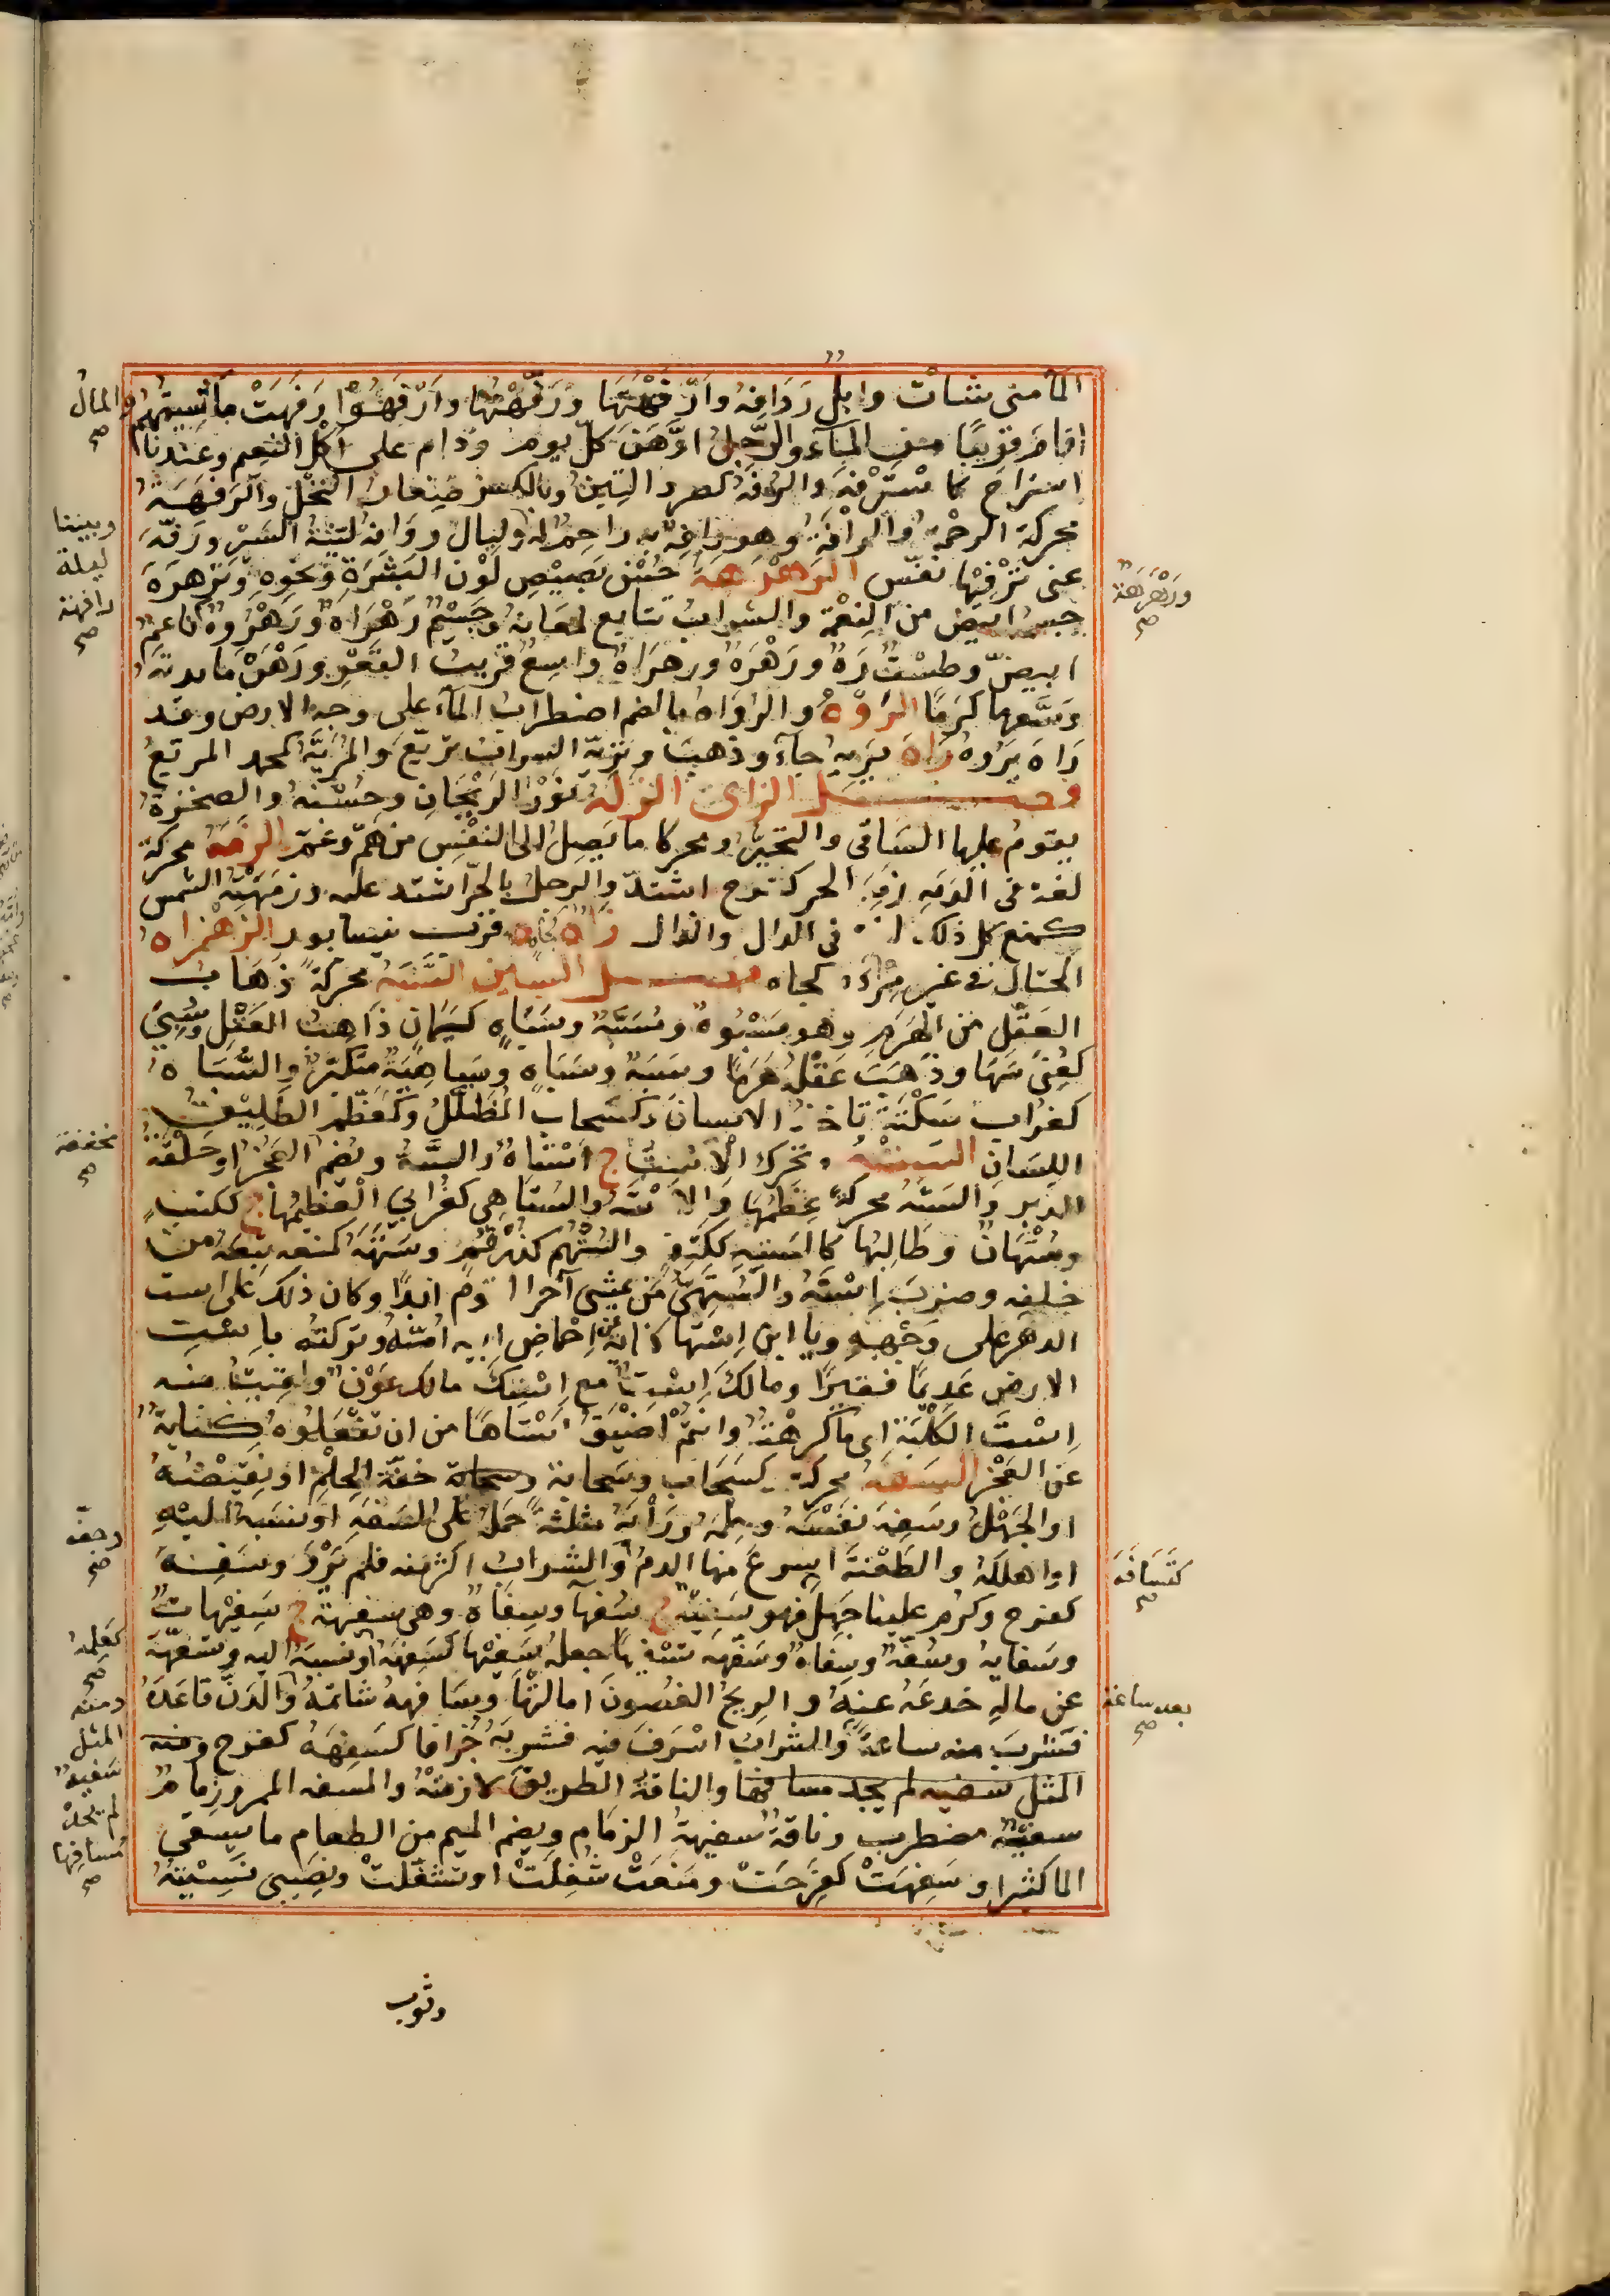 المآء متى شاءت وابل روافه وارفهتها ورفهتها وارفهوا رفهت ماشيتهم والمال
اقام قريبا من المآء والرجل ادهن كل يوم وداوم على اكل النعيم وعندنا
استراح كاسترفه والرفه كصرد التبن وبالكسر صغار النخل والرفهة
محركة الرحمة والرافة وهو رافه به راحم له وليال روافه لينة السير ورفه
عنى ترفيها نفس الرهرهة حسن بصيص لون البشرة ونحوه وترهره
جسمه ابيض من النعمة والشراب تتابع لمعانه وجسم رهراه ورهروه ناعم
ابيض وطست رهره ورهراه واسع قريب القعر ورهره مايدته
وسعها كرما الروه والرواه بالضم اضطراب المآء على وجه الارض وقد
راه يروه راه يريه جآء وذهب وتريه السراب تريع والمريه كمحمد المريع
فصل الزاى الزله نور الريحان وحسنه والصخرة
يقوم عليها الساقى والتحير ومحركا ما يصل الى النفس من هم وغم الزمه محركة
لغة فى الدمه زمه الحر كفرح اشتد والرجل بالحر اشتد عليه وزمهته الشمس
كمنع كل ذلك لغة فى الدال والذال زاه كجاه قرب نيسابور الزهزاه
المختال فى غير مرآة كجاه فصل السين السبه محركة ذهاب
العقل من الهرم وهو مسبوه ومسبه وسباه كيمان ذاهب العقل وسبه
كعنى سبها وذهب عقله هرما وسبه وسباه وسباهية متكبر والسباه
كغراب سكتة تاخذ الانسان وكسحاب المضلل وكمعظم الطليق
اللسان السته ويحرك الاست ج استاه والسته ويضم العجز او حلقة
الدبر والسته محركة عظمها والاسته والستاهى كغرابى العظيمها ج ككتب
وستهان وطالبها كالسته ككتف والستهم كزرقم وستهه كمنعه تبعه من
خلفه وضرب استه والستهى من يمشى آخر القوم ابدا وكان ذلك على است
الدهر على وجهه ويا ابن استها كناية عن احماض ابيه امه وتركته باست
الارض عديما فقيرا ومالك است مع استك مالك عون ولقيت منه
است الكلبة اى ما كرهته وانتم اضيق استاها من ان تفعلوه كناية
عن العجز السفه محركة كسحاب وسحابة خفة الحلم او نقيضه
او الجهل وسفه نفسه ورايه مثلثة حمله على السفه او نسبه اليه
او اهلكه والطعنة اسرع منها الدم والشراب اكثر منه فلم يرو وسفه
كفرح وكرم علينا جهل فهو سفيه ج سفهآ وسفاه وهى سفيهة ج سفيهات
وسفايه وسفه وسفاه وسفهه تسفيها جعله سفيها كسفهه او نسبه اليه وتسفهه
عن ماله خدعه عنه والريح الغصون امالتها وسافهه شاتمه والدن قاعده
فشرب منه ساعة والشراب اسرف فيه فشربه جزافا كسفهه كفرح ومنه
المثل سفيه لم يجد مسافها والناقة الطريق لازمته والمسفه المرور زمام
سفيه مضطرب وناقة سفيهة الزمام وبضم الميم من الطعام ما يسقى
المآ كثيرا وسفهت كفرحت ومنعت شغلت او تشغلت ونصيبى نسيته
وبيننا
ليلة
رافهة
صح
ورهرهة
صح
مخففة
صح
كسافه
صح
كعلمه
صح
بعد ساعة
صح
ومنه
المثل
سفيه
لم يجد
مسافها
صح
وثوب